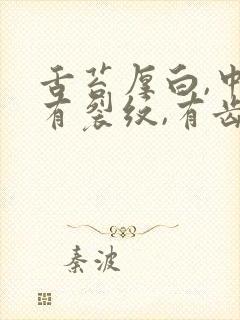 舌苔厚白,中
有裂纹,有齿
秦波